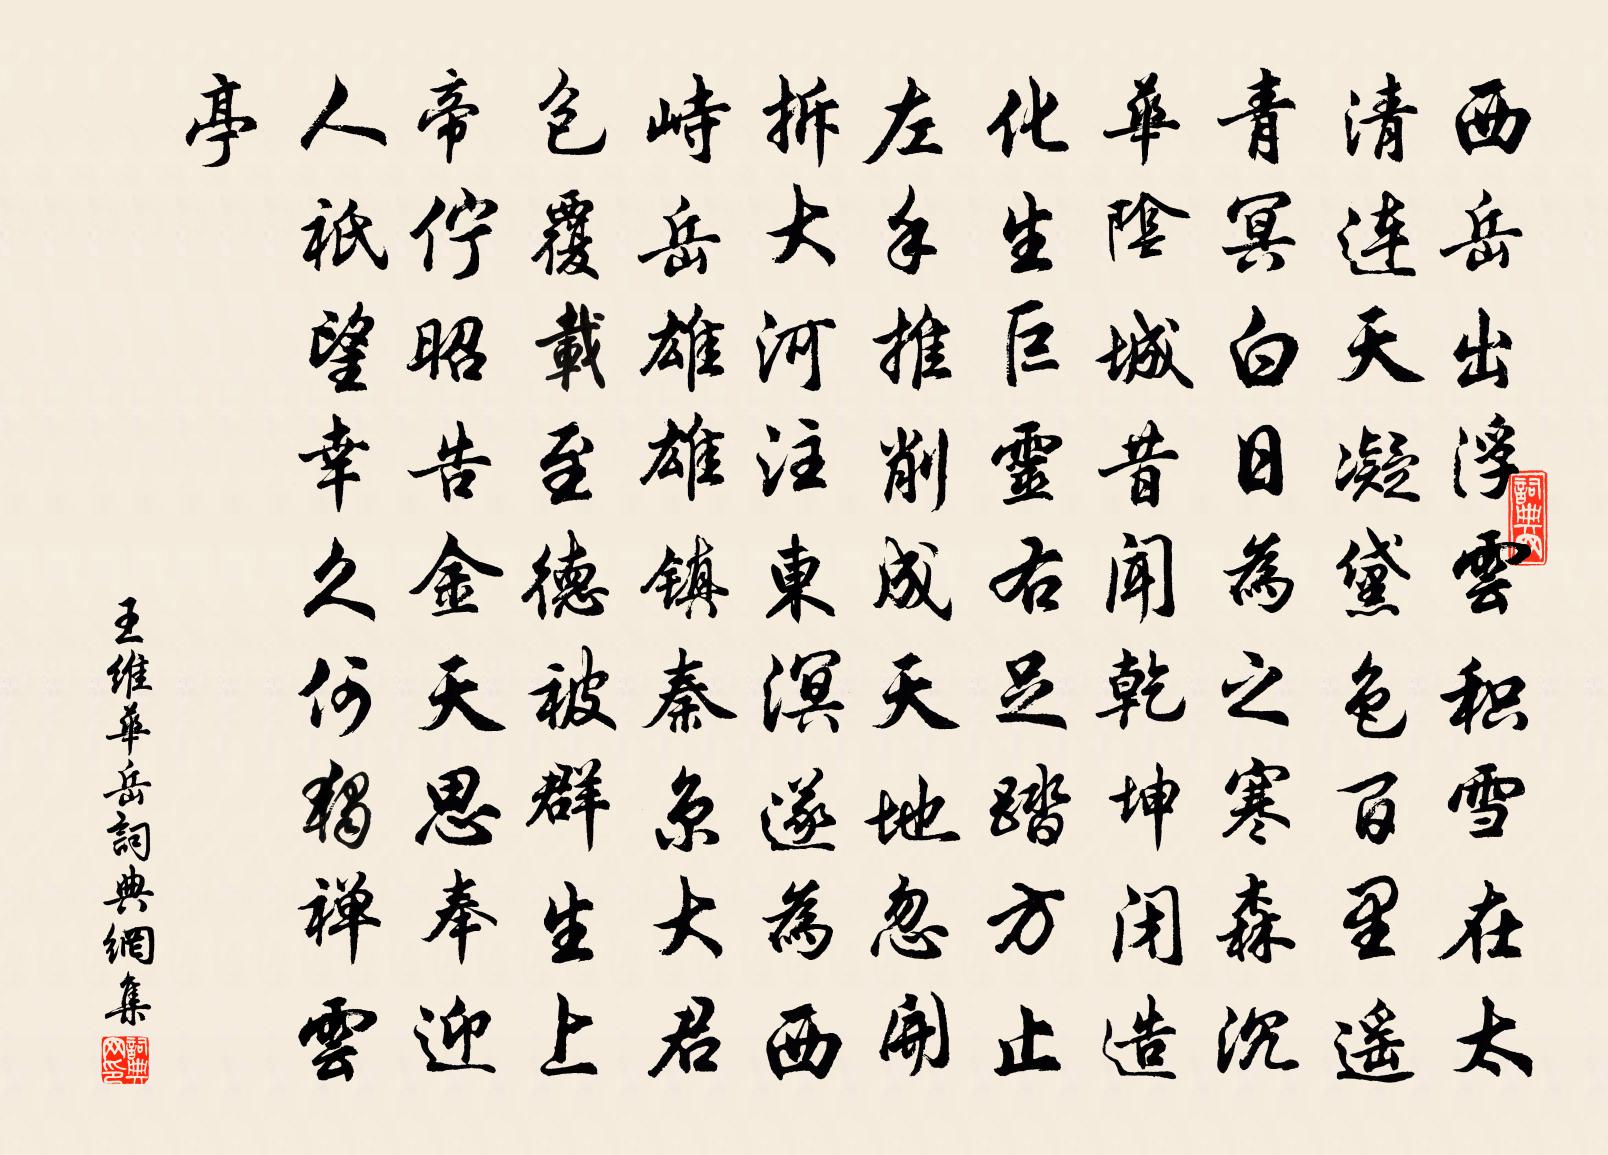 西岳出浮雲积雪在太
清连天凝黛色百里遥
青冥白日為之寒森沉
華陰城昔闻乾坤闭造
化生巨靈右足踏方止
左手推削成天地忽開
拆大河注東溟遂為西
峙岳雄雄镇秦京大君
包覆載至德被群生上
帝佇昭告金天思奉迎
人祇望幸久何獨禅雲
亭
王维華岳詞典網集
詞典网
詞典网印